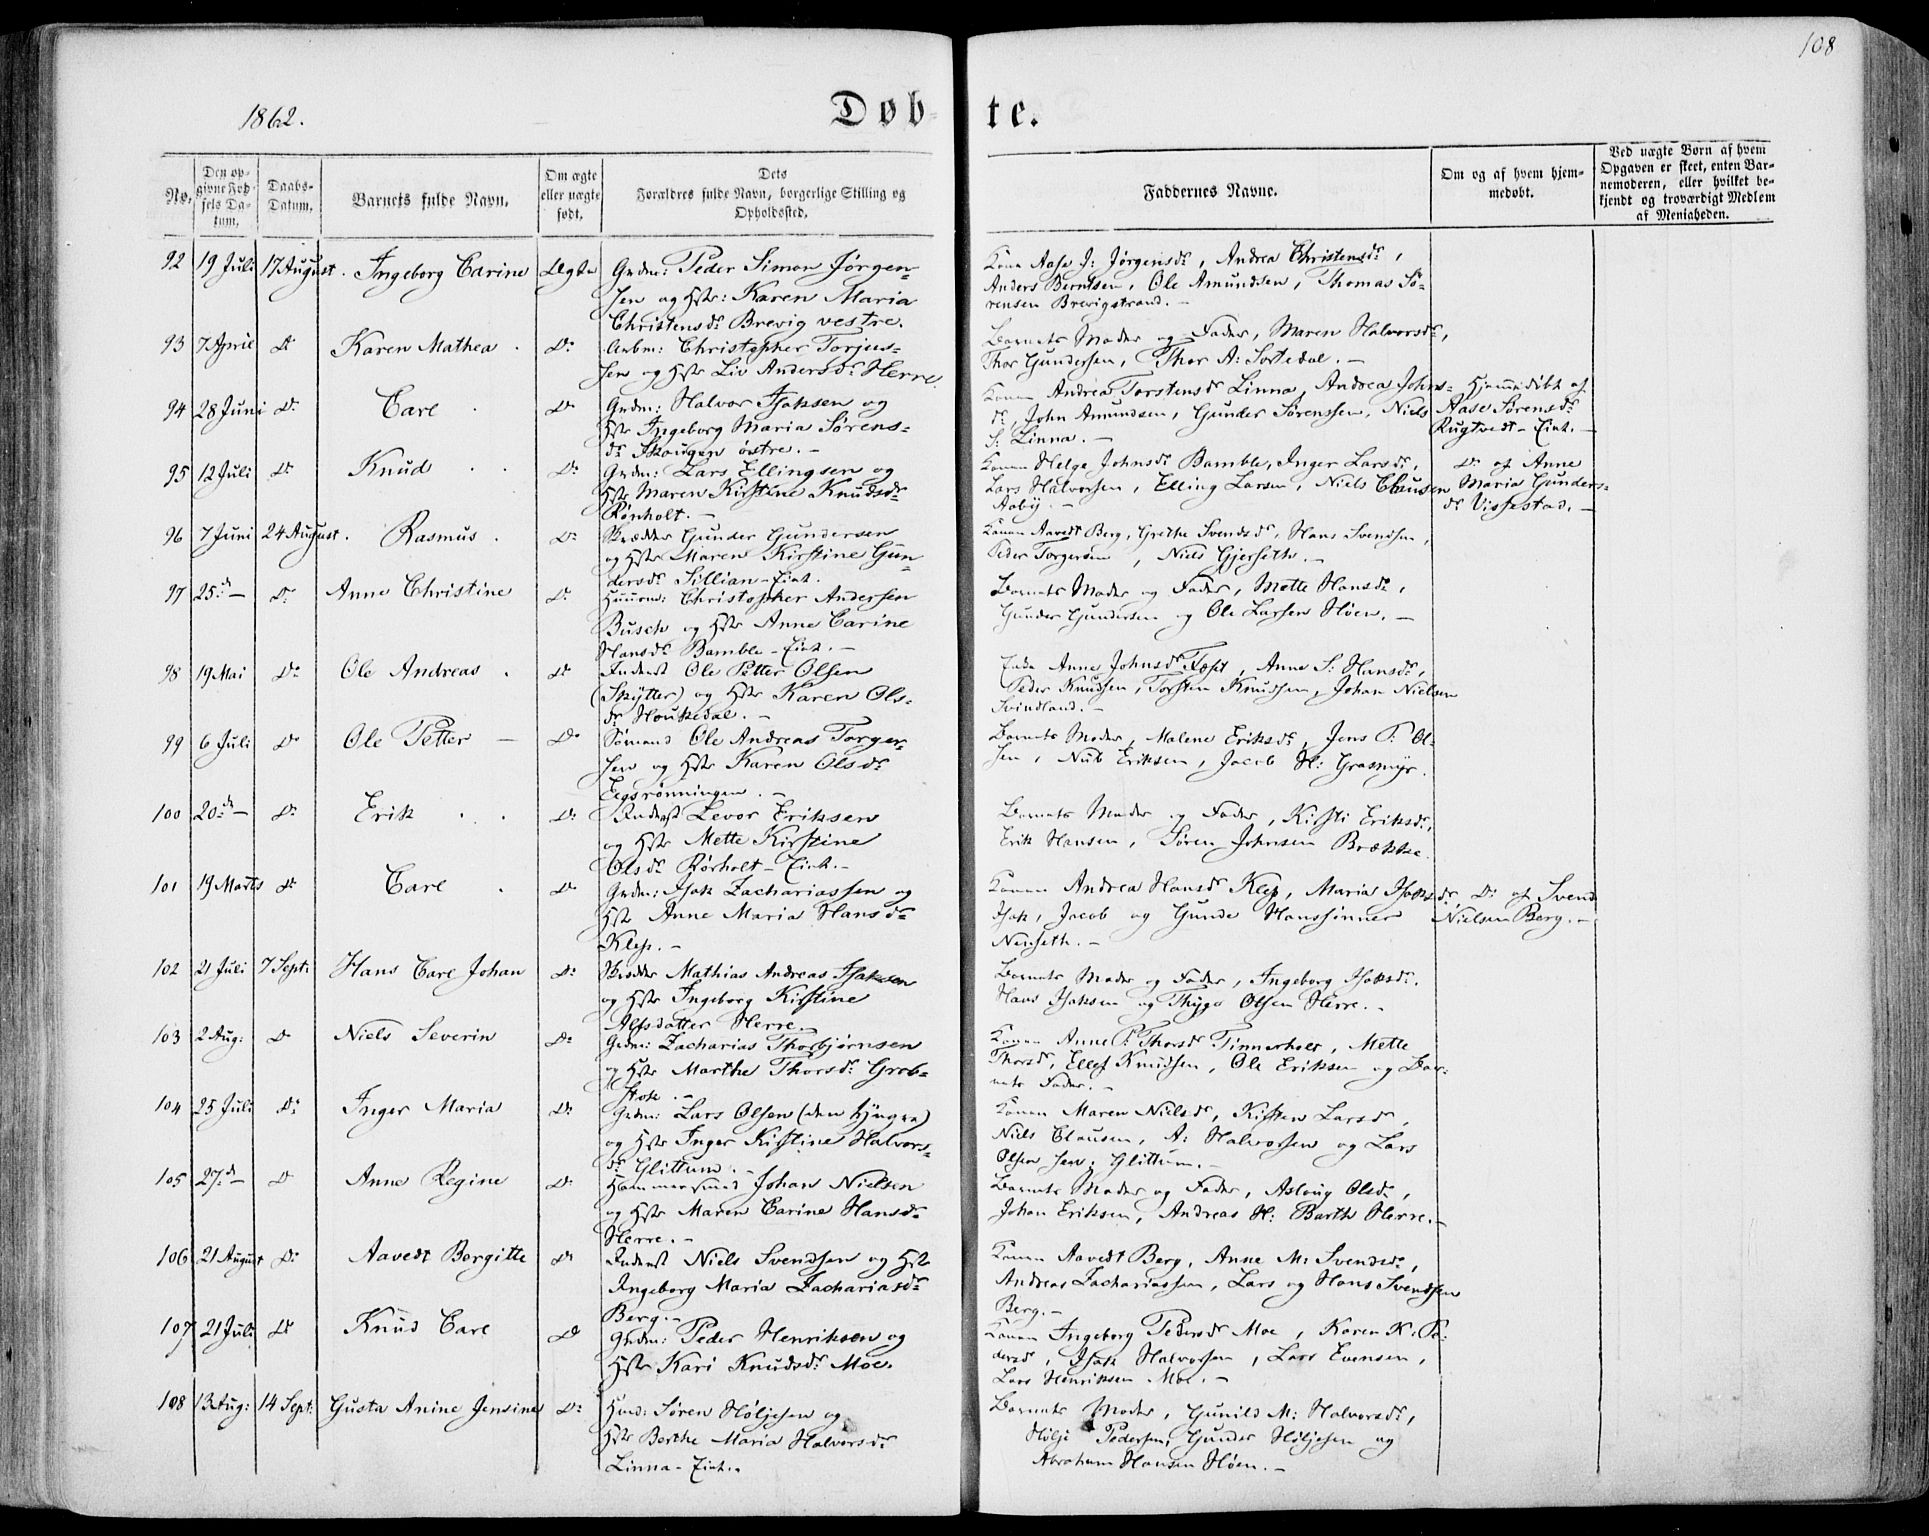 108
1862.
Døbte.
No.
Den opgivne Fødsels Datum.
Daabs-Datum.
Barnets fulde Navn.
Om ægte eller uægte født.
Dets Forældres fulde Navn, borgerlige Stilling og Opholdssted.
Faddernes Navne.
Om og af hvem hjemmedøbt.
Ved uægte Børn af hvem Opgaven er skeet, enten Barnemoderen, eller hvilket bekjendt og troværdigt Medlem af Menigheden.
92 19 Juli 17 August. Ingeborg Carine Ægte Grdm: Peder Simon Jørgen-
sen og Hstr: Karen Maria
Christensdr Brevig vestre.
Konen Aase J: Jørgensdr, Andrea Christensdr,
Anders Berntsen, Ole Amundsen, Thomas Sö-
rensen Brevigstrand. -
93 7 April Do Karen Mathea Do Arbm: Christopher Torjus-
sen og Hstr Liv Andersdr Herre
Barnets Moder og Fader, Maren Halvorsdr,
Thor Gundersen, Thor A: Sortedal. -
94 28 Juni Do Carl Do Grdm: Halvor Isaksen og
Hstr Ingeborg Maria Sørens-
dr Skougen östre. -
Konen Andrea Torstensdr Linna, Andrea Johns-
dr, John Amundsen, Gunder Sörenssen, Niels
S: Linna. -
Hjemmedöbt af
Aase Sörensdr
Rugtvedt - Eiet. -
95 12 Juli Do Knud Do Grdm: Lars Ellingsen og
Hstr Maren Kirstine Knudsdr
Rönholt. -
Konen Helge Johnsdr Bamble, Inger Larsdr,
Lars Halvorsen, Elling Larsen, Niels Clausen
Aaby. -
Do af Anne
Maria Gunders-
dr Vissestad. -
96 7 Juni 24 August. Rasmus Do Skrædder Gunder Gundersen
og Hstr Maren Kirstine Gun-
dersdr Sillian - Eiet.
Konen Aavedt Berg, Grethe Svendsdr, Hans Svendsen,
Peder Torgersen, Niels Gjerseth. -
97 25de - Do Anne Christine Do Huusm: Christopher Andersen
Busch og Hstr Anne Carine
Hansdr Bamble - Eiet. -
Barnets Moder og Fader, Mette Hansdr,
Gunder Gundersen og Ole Larsen Höen. -
98 19 Mai Do Ole Andreas Do Inderst Ole Petter Olsen
(Skytter) og Hstr Karen Ols-
dr Houkedal. -
Anne Johnsdr, Anne S: Hansdr,
Peder Knudsen, Torsten Knudsen, Johan Nielsen
Svindland. -
99 6 Juli Do Ole Petter - Do Sömand Ole Andreas Torger-
sen og Hstr Karen Olsdr
Eegsrönningen. -
Barnets Moder, Malene Eriksdr, Jens P: Ol-
sen, Nub Eriksen, Jacob H: Grasmyr.
100 20de - Do Erik Do Inderst Levor Eriksen
og Hstr Mette Kirstine
Olsdr Rörholt - Eiet. -
Barnets Moder og Fader, Kirsti Eriksdr,
Erik Hansen, Sören Johnsen Brække.
101 19 Marts Do Carl Do Grdm: Isak Zachariassen og
Hstr Anne Maria Hansdr
Klep. -
Konen Andrea Hansdr Klep, Maria Isaksdr,
Isak, Jacob og Gunde Hanssönner
Nenseth. -
Do af Svend
Nielsen Berg. -
102 21 Juli 7 Sept: Hans Carl Johan Do Skrædder Mathias Andreas Isaksen
og Hstr Ingeborg Kirstine
Alfsdatter Herre. -
Barnets Moder og Fader, Ingeborg Isaksdr.
Hans Isaksen og Thyge Olsen Herre. -
103 2 Aug: Do Niels Severin Do Grdm: Zacharias Thorbjørnsen
og Hstr Marthe Thorsdr Grob-
stok. -
Konen Anne P: Thorsdr Tinnerholt, Mette
Thorsdr, Ellef Knudsen, Ole Eriksen og Bar-
nets Fader. -
104 25 Juli Do Inger Maria Do Grdm: Lars Olsen (den yngre)
og Hstr Inger Kirstine Halvors-
dr Glittum. -
Konen Maren Nielsdr, Kirsten Larsdr,
Niels Clausen, A: Halvorsen og Lars
Olsen sen: Glittum. -
105 27de - Do Anne Regine Do Hammersmed Johan Nielsen
og Hstr Maren Carine Hansdr
Herre. -
Barnets Moder og Fader, Aslaug Olsdr,
Johan Eriksen, Andreas H: Barth Herre. -
106 21 August Do Aavedt Bergitte Do Inderst Niels Svendsen og Hstr
Ingeborg Maria Zachariasdr
Berg. -
Konen Aavedt Berg, Anne M: Svendsdr,
Andreas Zachariassen, Lars og Hans Svendsen
Berg. -
107 21 Juli Do Knud Carl Do Grdm: Peder Henriksen og
Hstr Kari Knudsdr Moe.
Konen Ingeborg Pedersdr Moe, Karen K: Pe-
dersdr, Isak Halvorsen, Lars Evensen,
Lars Henriksen Moe. -
108 13 Aug: 14 Sept: Gusta Anine Jensine Do Huusm: Sören Höljesen og
Hstr Berthe Maria Halvorsdr
Linna - Eiet. -
Barnets Moder, Gunild M: Halvorsdr,
Hölje Pedersen, Gunder Höljesen og
Abraham Hansen Höen. -